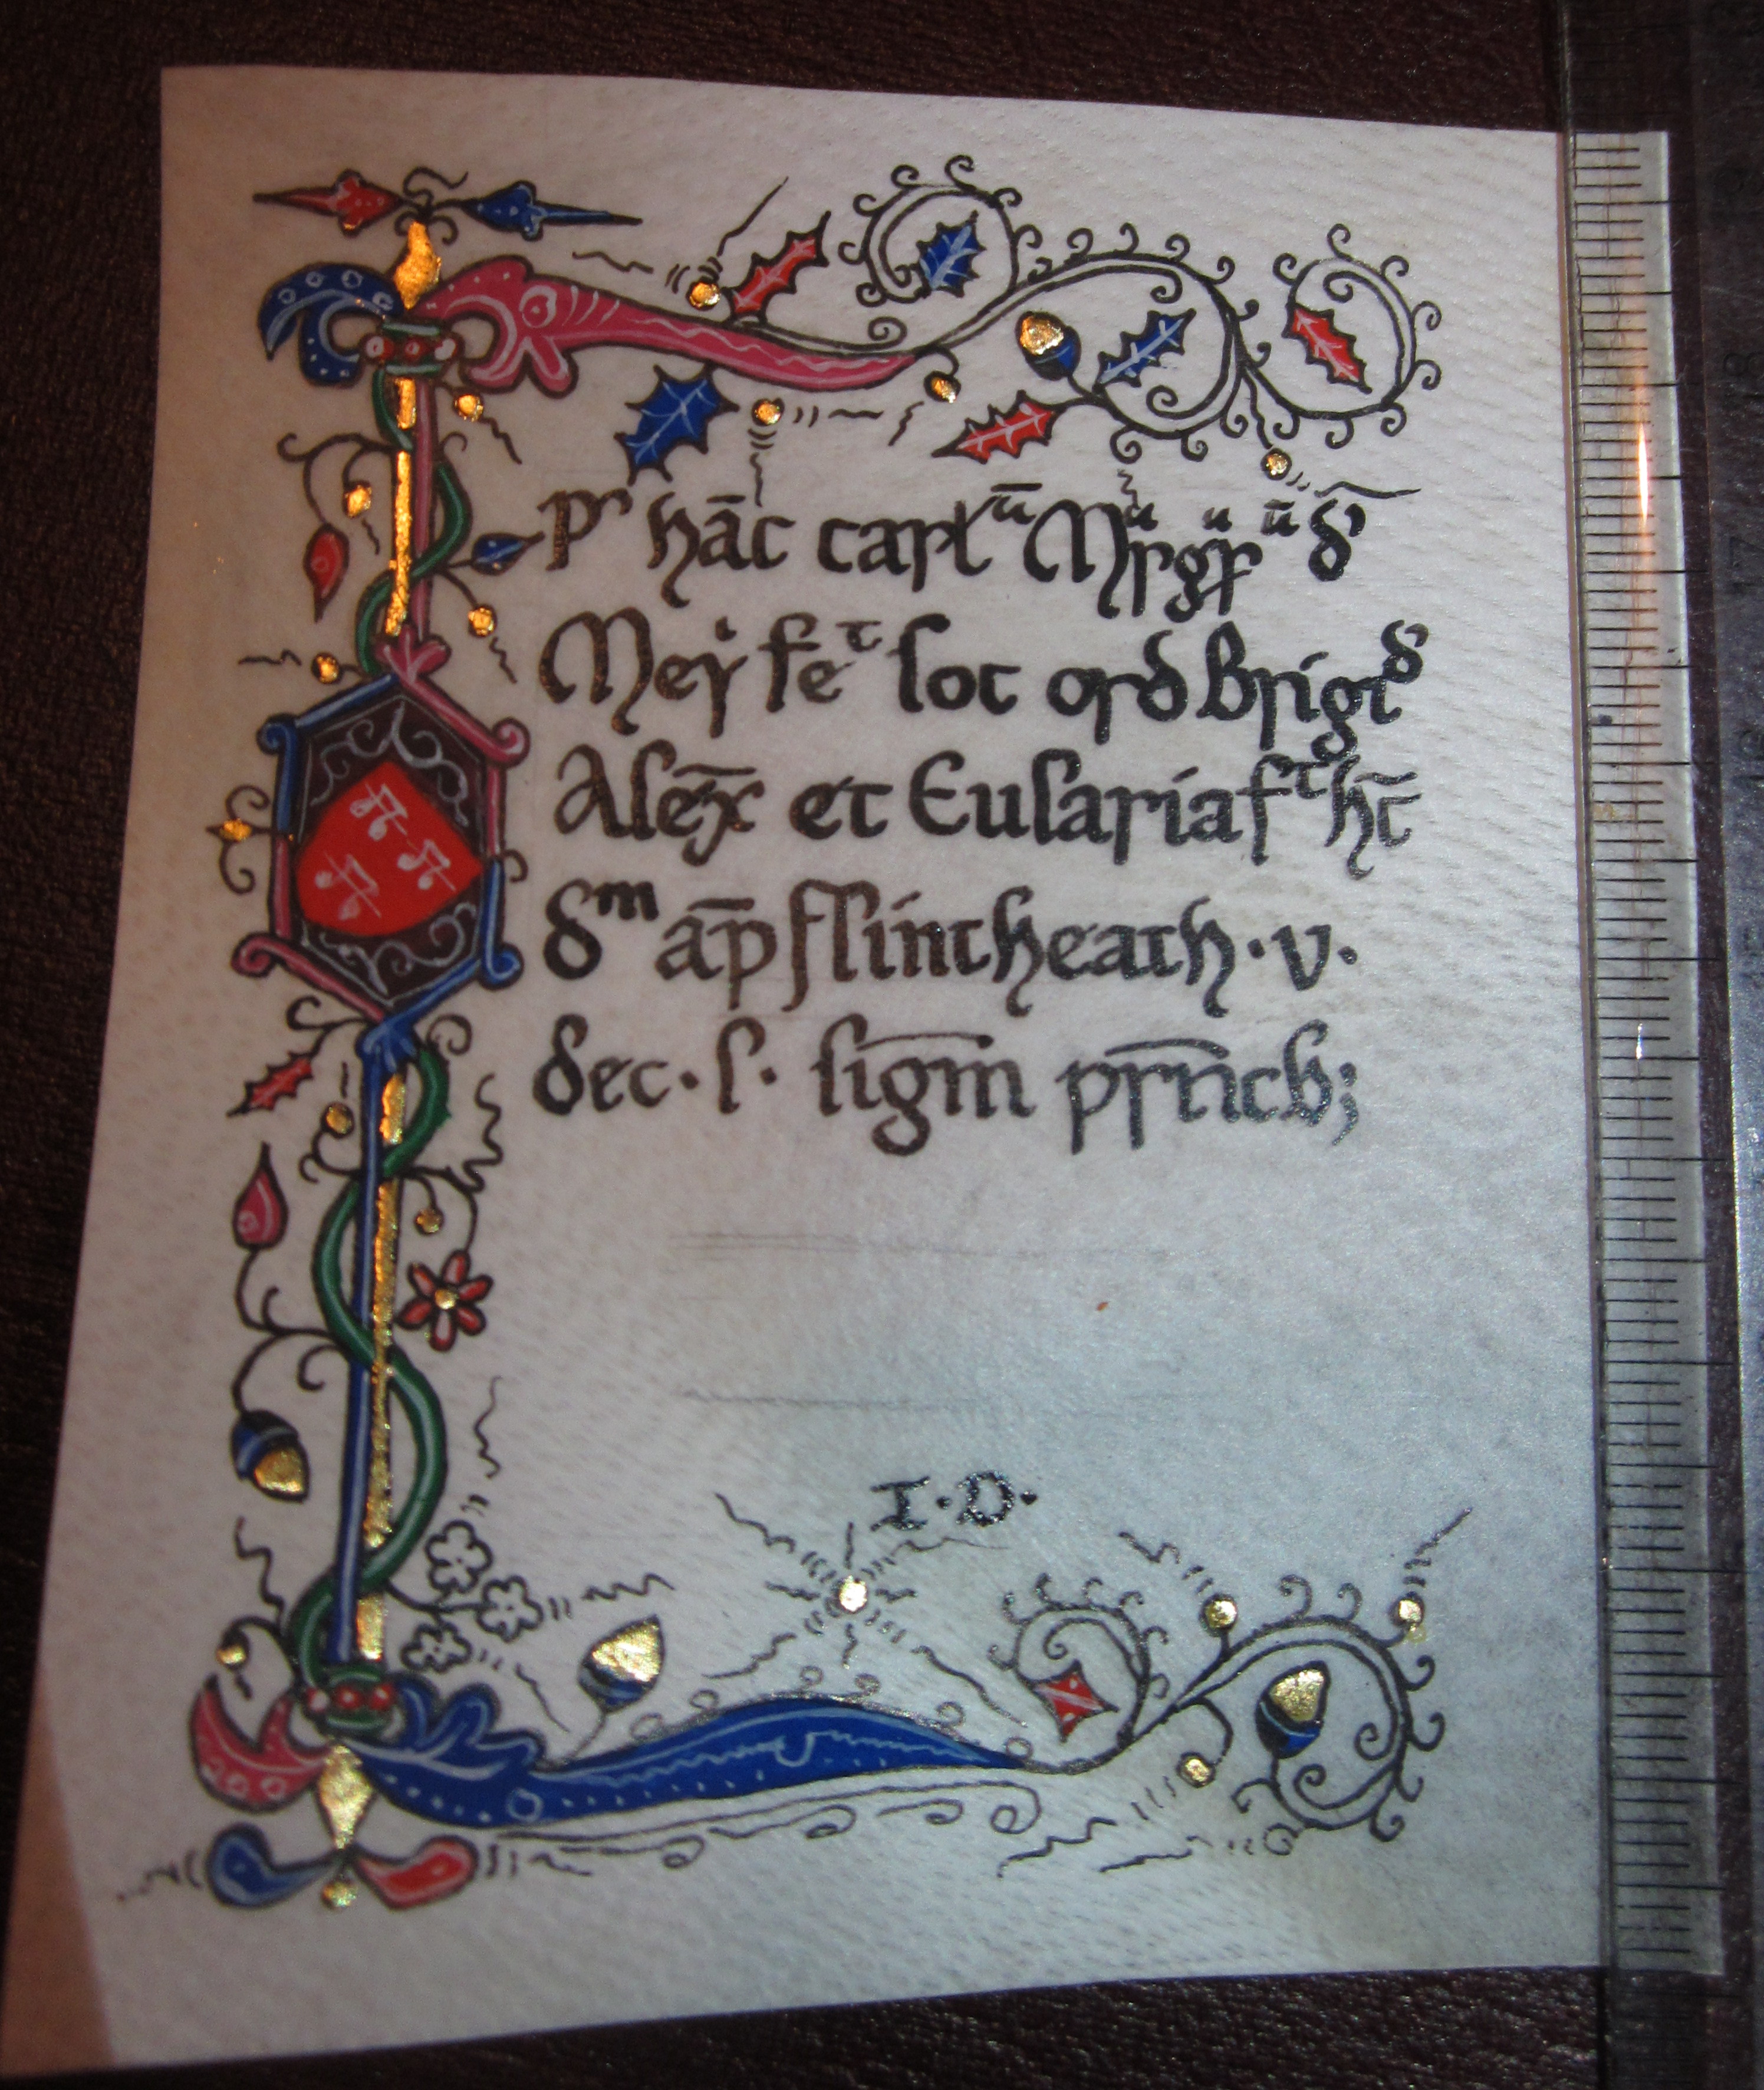 pr hāc cartū Mrgr ū d
Mey fet loc ord Brigtd
Alex̄ et Eulariaf t hc̄
dm āp flintheath · v ·
dec · l · sigm̄ prn̄cb;
I · D ·